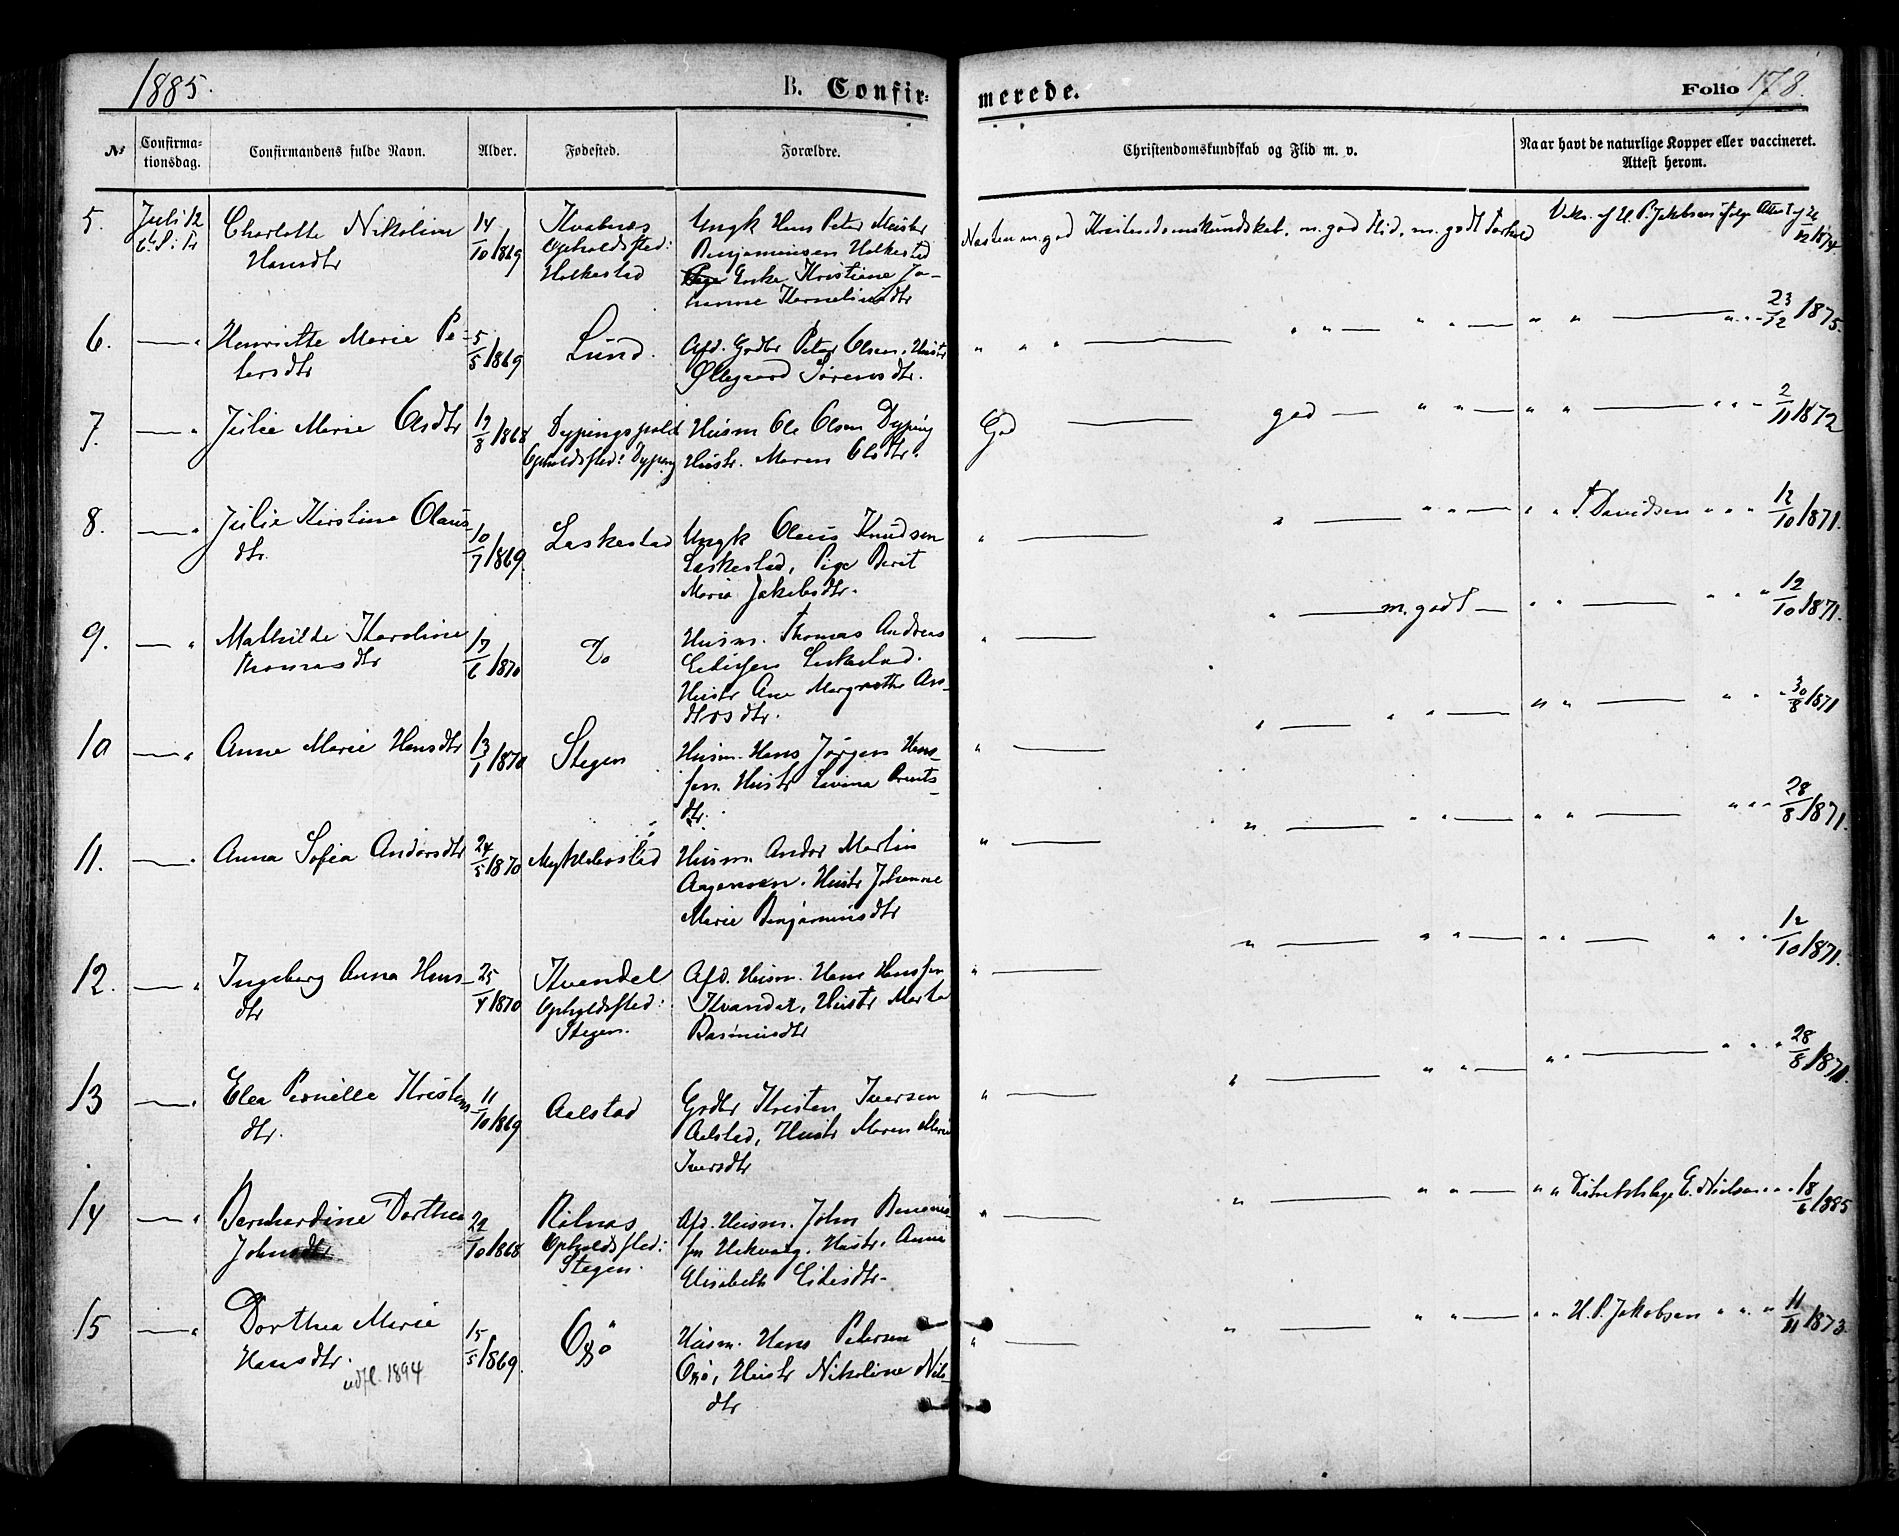 1885.
B. Confir-
merede.
Folio 178.
No
Confirma-
tionsdag.
Confirmandens fulde Navn.
Alder.
Fødested.
Forældre.
Christendomskundskab og Flid m. v.
Naar havt de naturlige Kopper eller vaccineret.
Attest herom.
5.
Juli 12
6. S. Tr
Charlotte Nikoline
Hansdtr
14/10 1869
Opholdsfted:
Holkestad
Ungk Hans Peter
Benjaminsen Holkestad
Enke Kristiane Jo-
hanne Korneliusdtr
Næsten m. god Kristendomskundskab, m. god Flid, m. godt Forhold
Vaks. af H. P. Jakobsen ifølge Attest af 12 1874.
6.
— "
Henriette Marie Pe-
tersdtr
5/5 1869
Lund.
Afd. Gbdbr Peter Olsen, Hustr
Ellegaard Sørensdtr.
" " " — " " — " " —
" " — " " 23/12 1875.
7.
— "
Julie Marie Olsdtr
19/8 1868
Dypingspold
Opholdsfted: Dyping
Husm Ole Olsen Dyping
Hustr. Maren Olsdtr.
God — god — " " —
" " — " " 2/11 1872
8.
— "
Julie Kirstine Olaus-
dtr.
10/7 1869
Laskestad
Ungk Olaus Knudsen
Laskestad, Pige Berit
Maria Jakobsdtr.
" — " — " " —
" " J. Davidsen " " " 12/10 1871.
9.
— "
Mathilde Karoline
Thomasdtr
17/6 1870
Do
Husm. Thomas Andreas
Laskestad.
Hustr Ane Margrethe An-
dersdtr.
" — " — m. godt —
" " — " " " 12/10 1871.
10
— "
Anne Marie Hansdtr
13/1 1870
Stegen
Husm. Hans Jørgen Han-
sen. Hustr Lavina Brents-
dtr.
" — " — " " —
" " — " " " 30/8 1871
11.
— "
Anna Sofia Andorsdtr
24/5 1870
Myklebostad
Husm. Andor Martin
Aagensen. Hustr Johanne
Marie Benjaminsdtr
" — " — " " —
" " — " " " 28/8 1871.
12.
— "
Ingeborg Anna Hans-
dtr
25/4 1870
Kvandel
Opholdsfted:
Stegen.
Afd. Husm. Hans Hansen
Kvandal, Hustr Marta
Rasmusdtr
" — " — " " —
" " — " " " 12/10 1871.
13
— "
Elea Pernille Kristens-
dtr.
11/10 1869
Aalstad
Gbdbr Kristen Iversen
Aalstad, Hustr Maren Marie
Iversdtr
" — " — " " —
" " — " " " 28/8 1871.
14
— "
Bernhardine Dorthea
Johnsdtr
22/10 1868
Opholdsfted:
Stegen.
Afd. Husm. John
Hustr. Anne
Elisabeth Eidisdtr.
" — " " " —
" " Distriktslæge E. Nielsen " " 18/6 1885
15
— "
Dorthea Marie
Hansdtr.
udfl. 1894
15/5 1869.
Oxø
Husm. Hans Petersen
Oxø, Hustr Nikoline Nils-
dtr
" — " — " " —
" " H. P. Jakobsen " " " 11/11 1873.